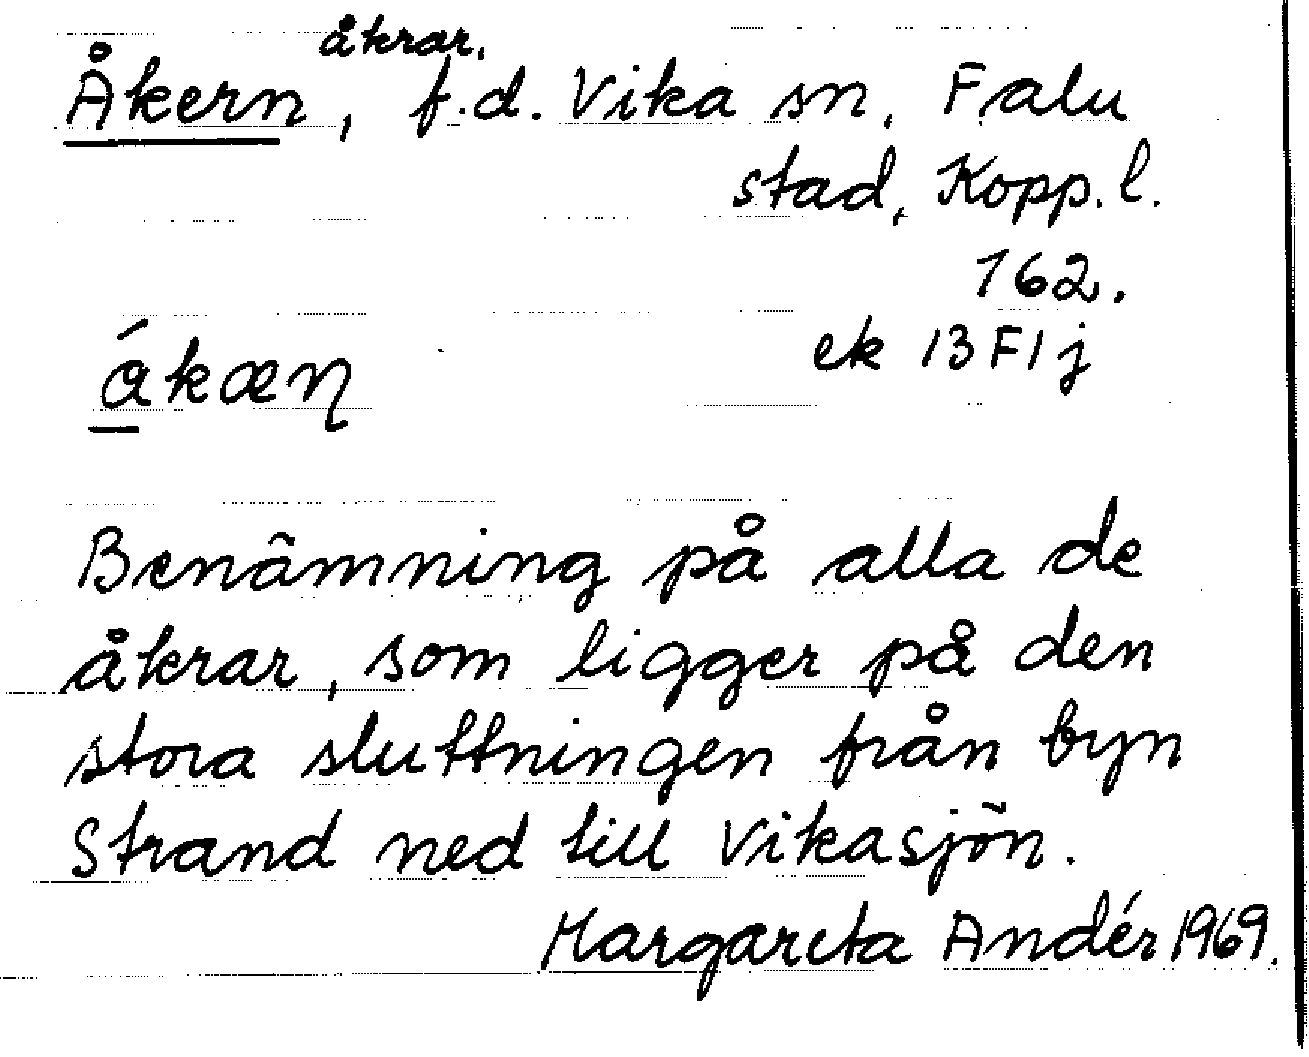 åkrar.
Åkern, f.d. Vika sn, Falu
stad, Kopp. l.
162.
ek 13 F1 j
ákæɳ
Benämning på alla de
åkrar, som ligger på den
stora sluttningen från byn
Strand ned till Vikasjön.
Margareta Andér 1969.